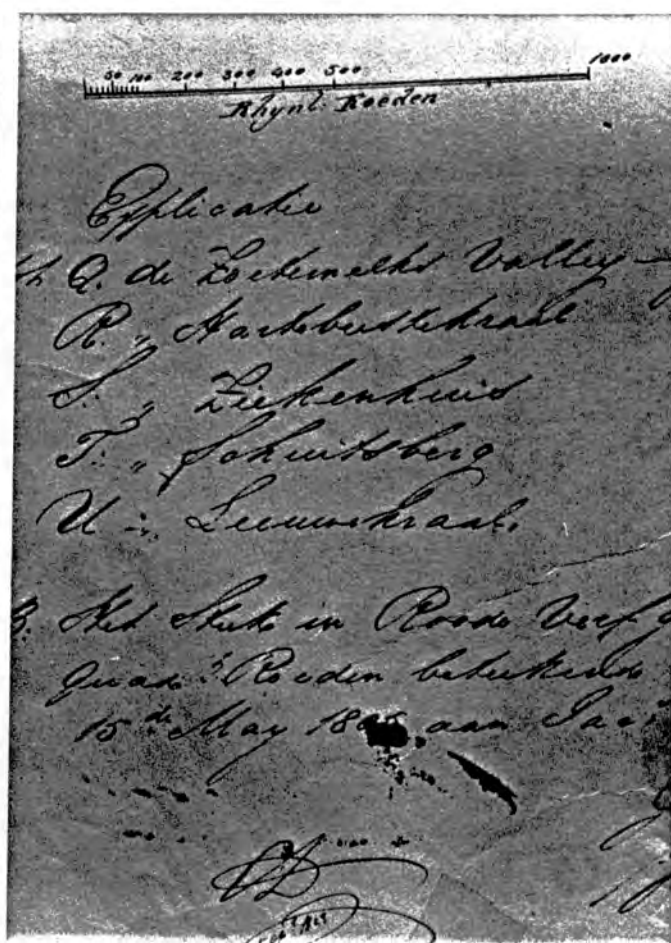 50 100 200 300 400 500 1000
Rhynl. Roeden
Explicatie
Q. de Zoetemelks Valley
R. " Hartebeestekraal
S. " Ziekenhuis
T. " Schuitsberg
U " Leeuwekraal.
Het Stuk in Roode Verf
Quad.t Roeden betekend
15de May 18 aan Jac